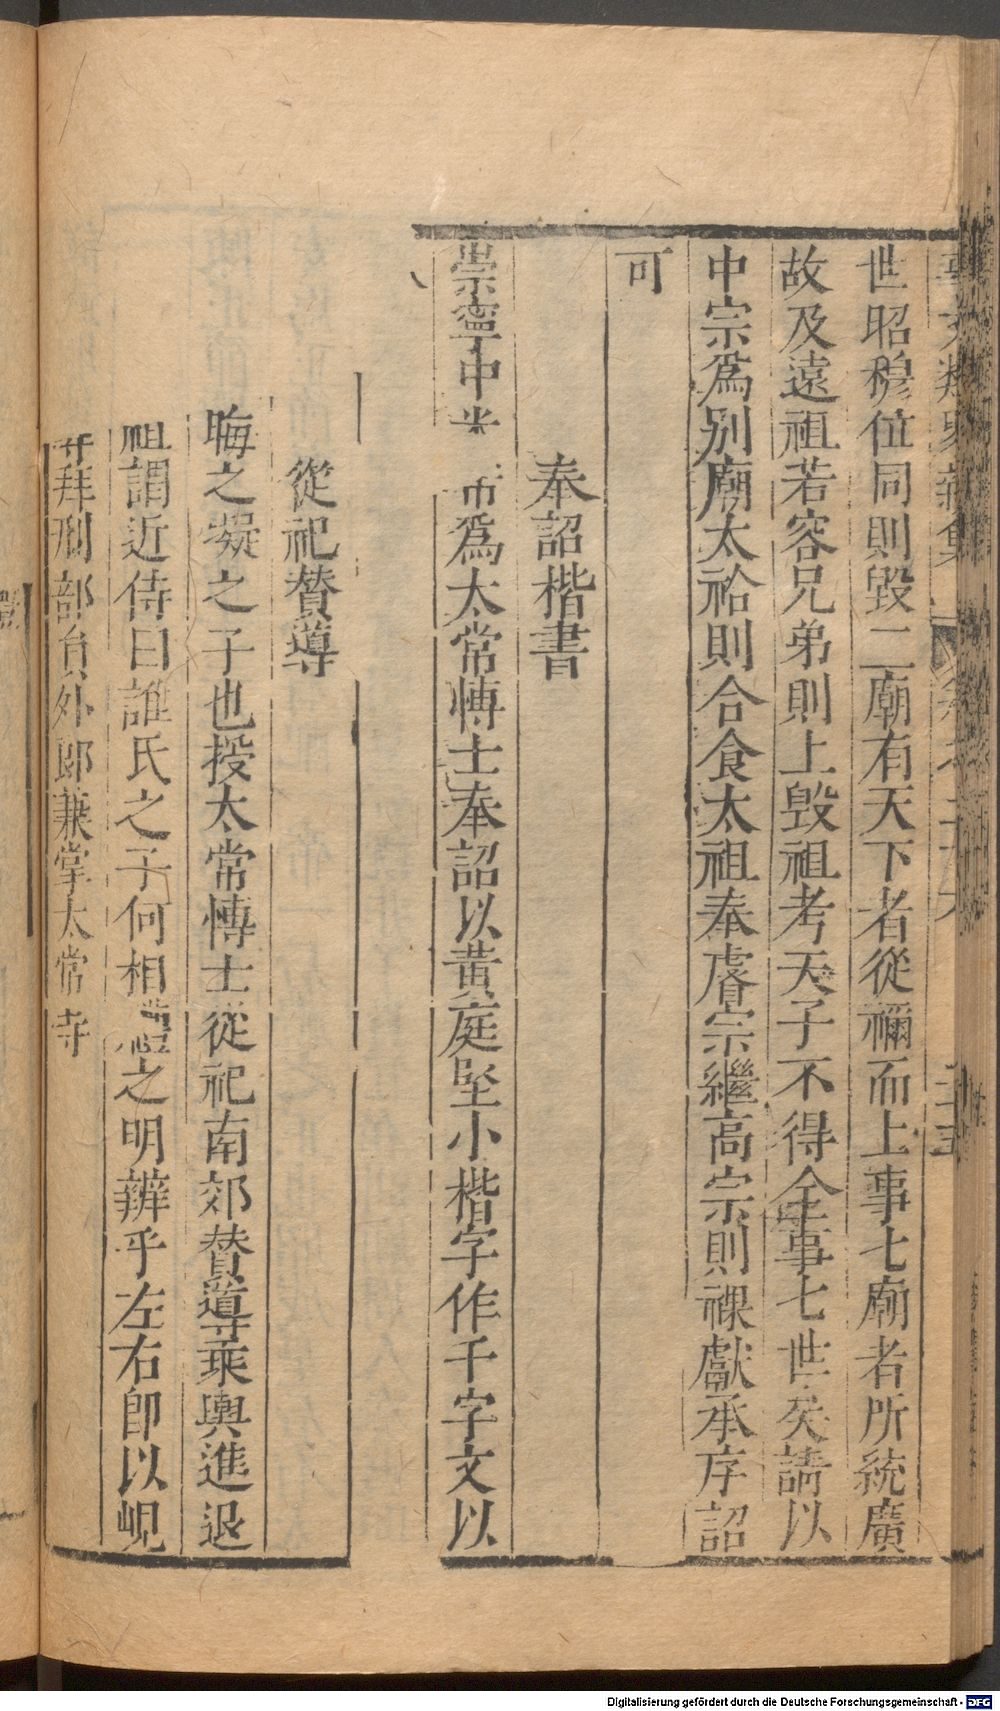 世昭穆位同則毀二廟有天下者從禰而上事七廟者所統廣
故及遠祖若容兄弟則上毀祖考天子不得全事七世矣請以
中宗爲別廟太祫則合食太祖奉睿宗繼高宗則祼獻承序詔
可
奉詔楷書
崇寧中米 芾爲太常博士奉詔以黃庭堅小楷字作千字文以
從祀贊導
晦之凝之子也授太常博士從祀南郊贊導乘輿進退
祖謂近侍曰誰氏之子何相 禮之明辨乎左右卽以峴
拜刑部員外郎兼掌太常寺
Digitalisierung gefördert durch die Deutsche Forschungsgemeinschaft - DFG